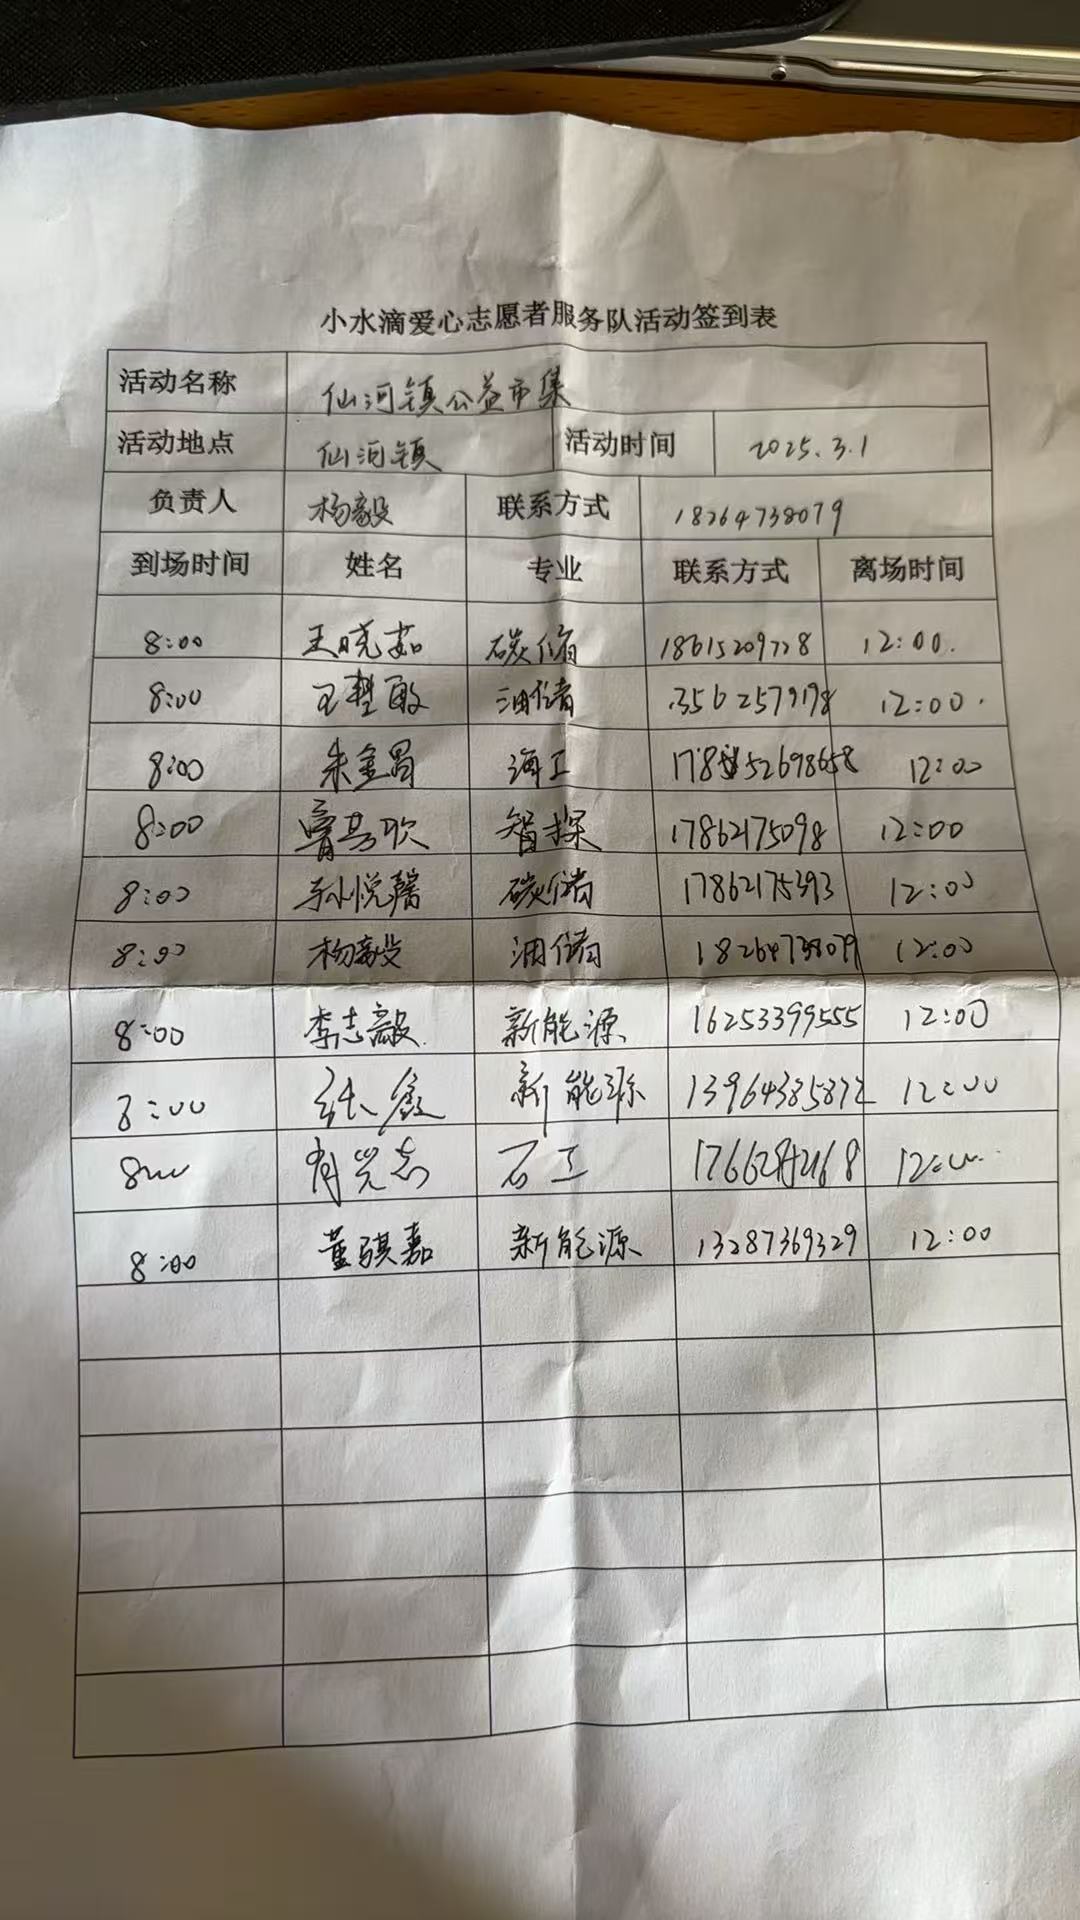 小水滴爱心志愿者服务队活动签到表
活动名称 仙河镇公益市集
活动地点 仙河镇 活动时间 2025.3.1
负责人 杨毅 联系方式 18264738079
到场时间 姓名 专业 联系方式 离场时间
8:00 王晓茹 碳储 18615209728 12:00.
8:00 油储 12:00.
8:00 朱金昌 海工 12:00
8:00 智探 17862175098 12:00
8:00 孙悦馨 碳储 17862175393 12:00
8:00 杨毅 油储 18264738079 12:00
8:00 李志毅 新能源 16253399555 12:00
8:00 张鑫 新能源 13964385872 12:00
8:00 肖光志 石工 12:00
8:00 董骐嘉 新能源 13287369329 12:00